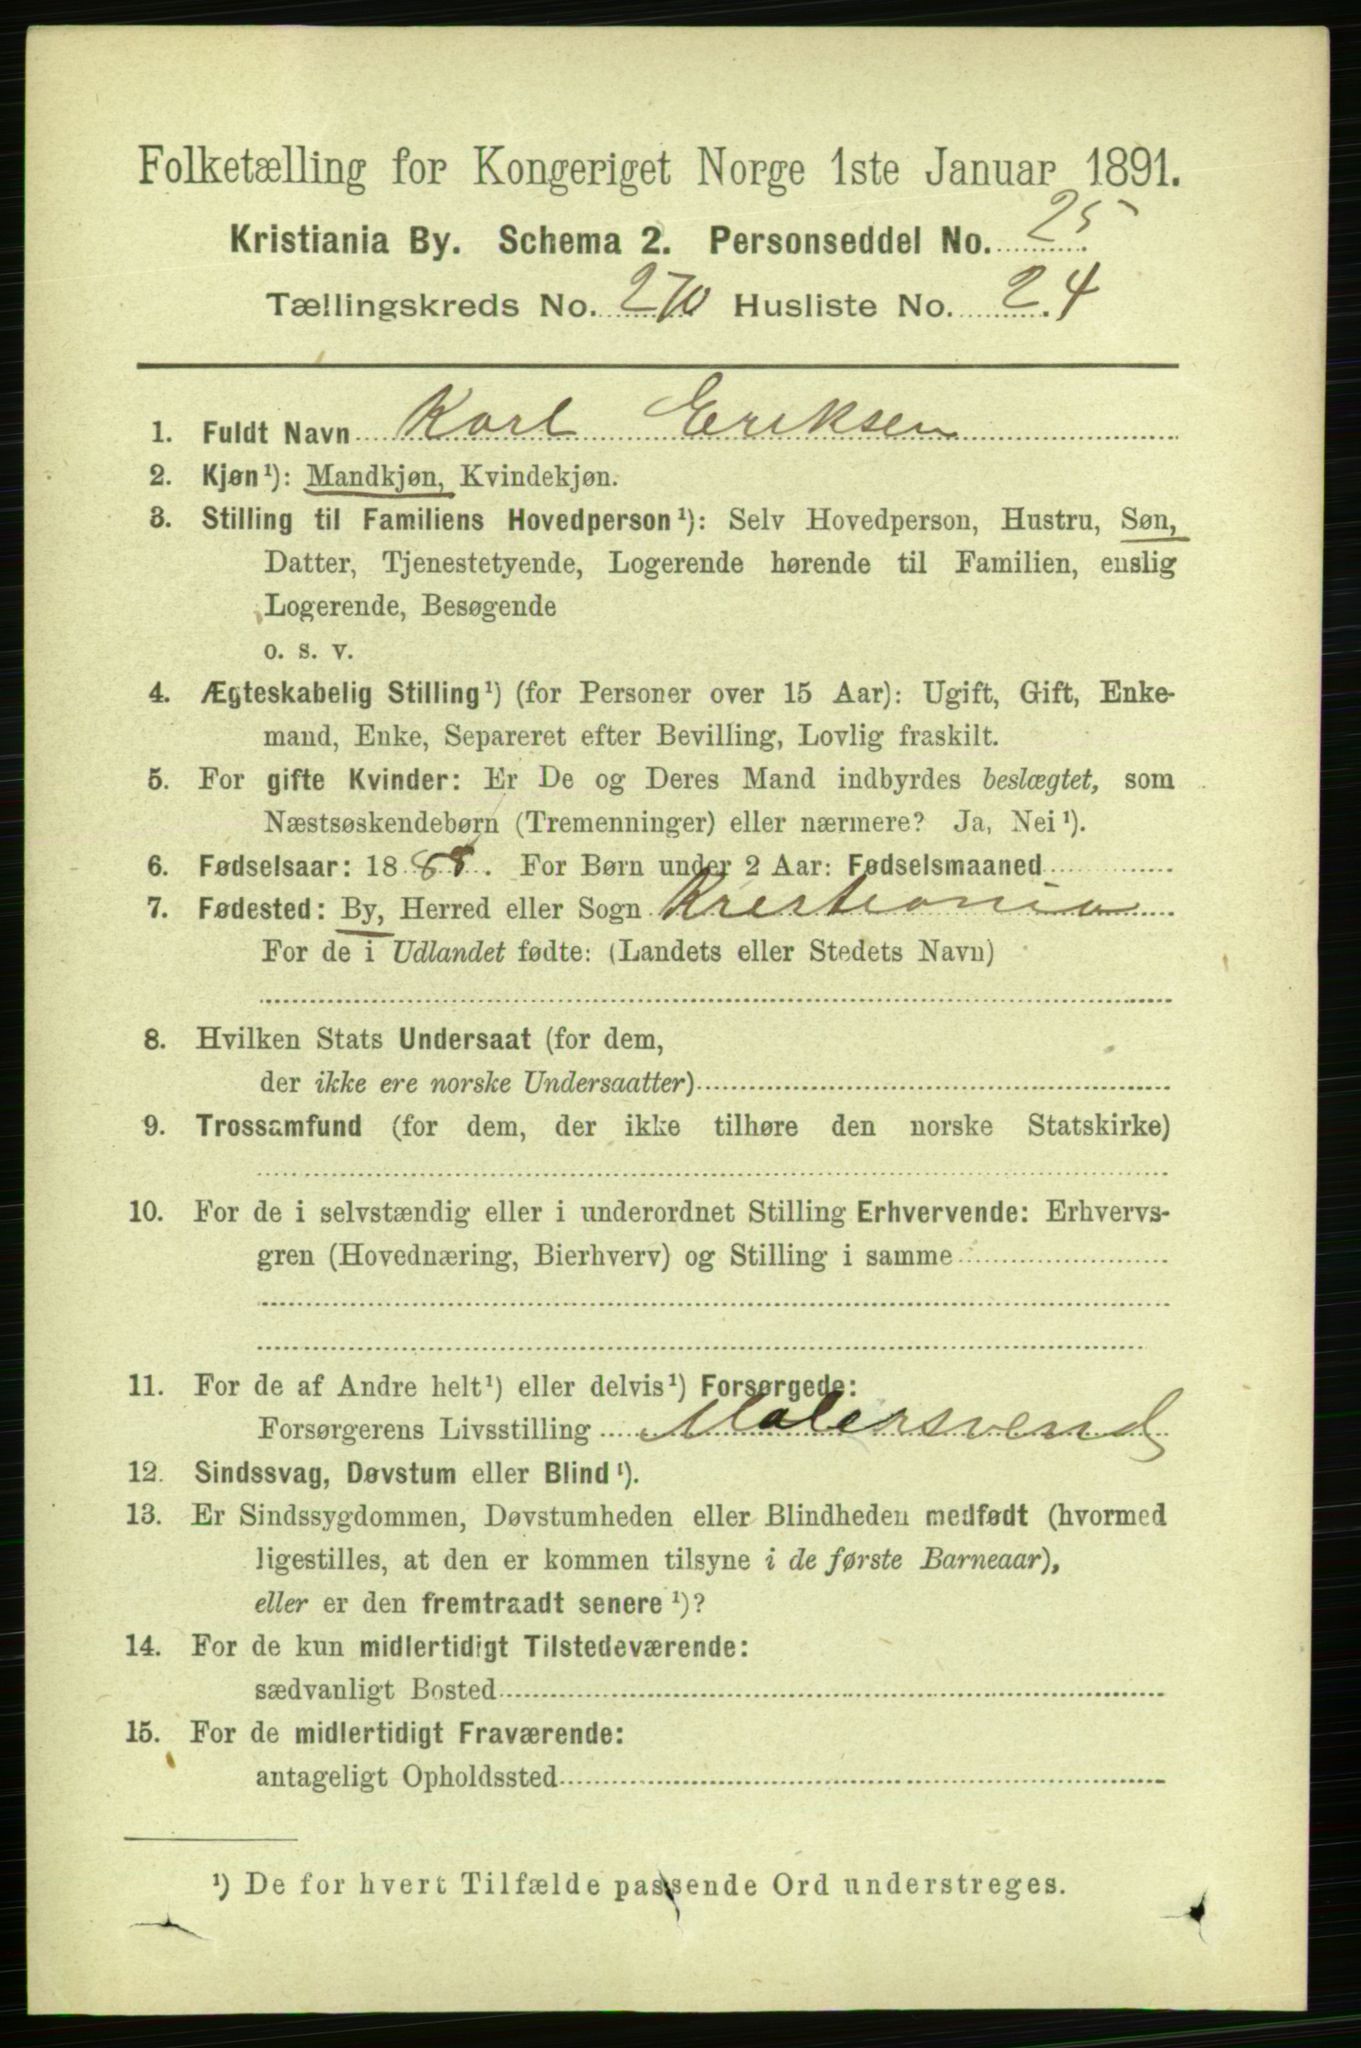 Folketælling for Kongeriget Norge 1ste Januar 1891.
Kristiania By. Schema 2. Personseddel No. 25
Tællingskreds No. 270 Husliste No. 24
1. Fuldt Navn Karl Eriksen
2. Kjøn¹): Mandkjøn, Kvindekjøn.
3. Stilling til Familiens Hovedperson¹): Selv Hovedperson, Hustru, Søn,
Datter, Tjenestetyende, Logerende hørende til Familien, enslig
Logerende, Besøgende
o. s. v.
4. Ægteskabelig Stilling¹) (for Personer over 15 Aar): Ugift, Gift, Enke-
mand, Enke, Separeret efter Bevilling, Lovlig fraskilt.
5. For gifte Kvinder: Er De og Deres Mand indbyrdes beslægtet, som
Næstsøskendebørn (Tremenninger) eller nærmere? Ja, Nei¹).
6. Fødselsaar: 1888. For Børn under 2 Aar: Fødselsmaaned
7. Fødested: By, Herred eller Sogn Kristiania
For de i Udlandet fødte: (Landets eller Stedets Navn)
8. Hvilken Stats Undersaat (for dem,
der ikke ere norske Undersaatter)
9. Trossamfund (for dem, der ikke tilhøre den norske Statskirke)
10. For de i selvstændig eller i underordnet Stilling Erhvervende: Erhvervs-
gren (Hovednæring, Bierhverv) og Stilling i samme
11. For de af Andre helt¹) eller delvis¹) Forsørgede:
Forsørgerens Livsstilling Malersvend
12. Sindssvag, Døvstum eller Blind¹).
13. Er Sindssygdommen, Døvstumheden eller Blindheden medfødt (hvormed
ligestilles, at den er kommen tilsyne i de første Barneaar),
eller er den fremtraadt senere¹)?
14. For de kun midlertidigt Tilstedeværende:
sædvanligt Bosted
15. For de midlertidigt Fraværende:
antageligt Opholdssted
¹) De for hvert Tilfælde passende Ord understreges.